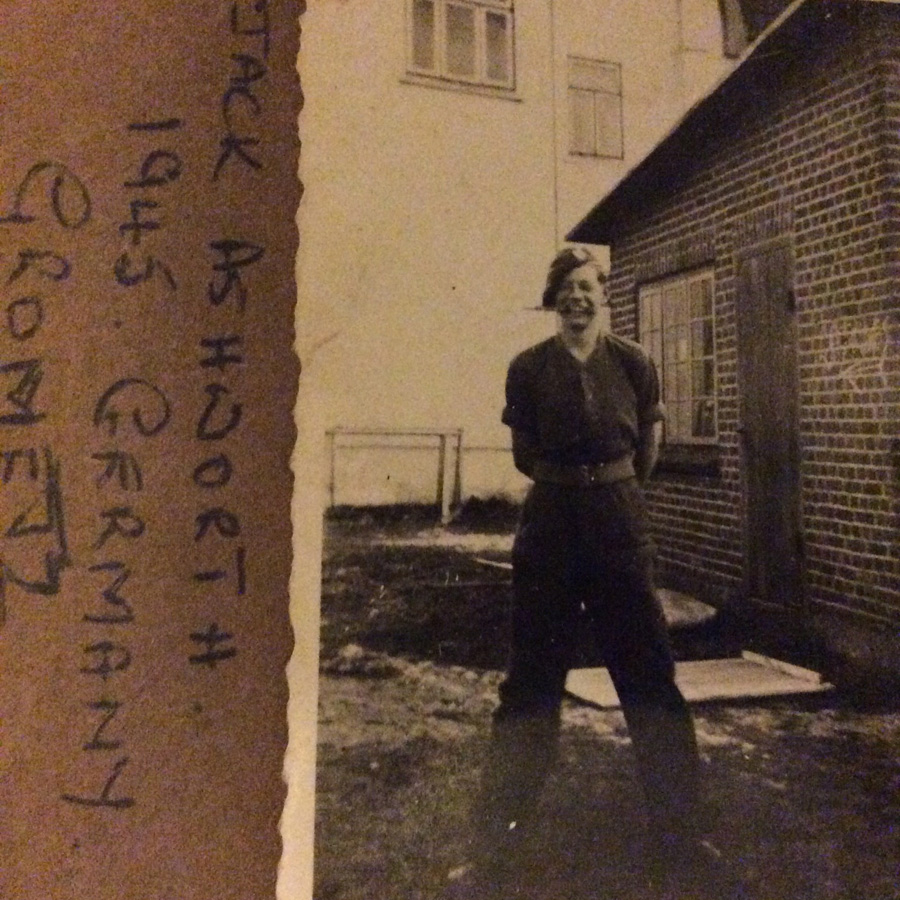 JACK ASHWORTH.
1945. GERMANY.
GROMETZ